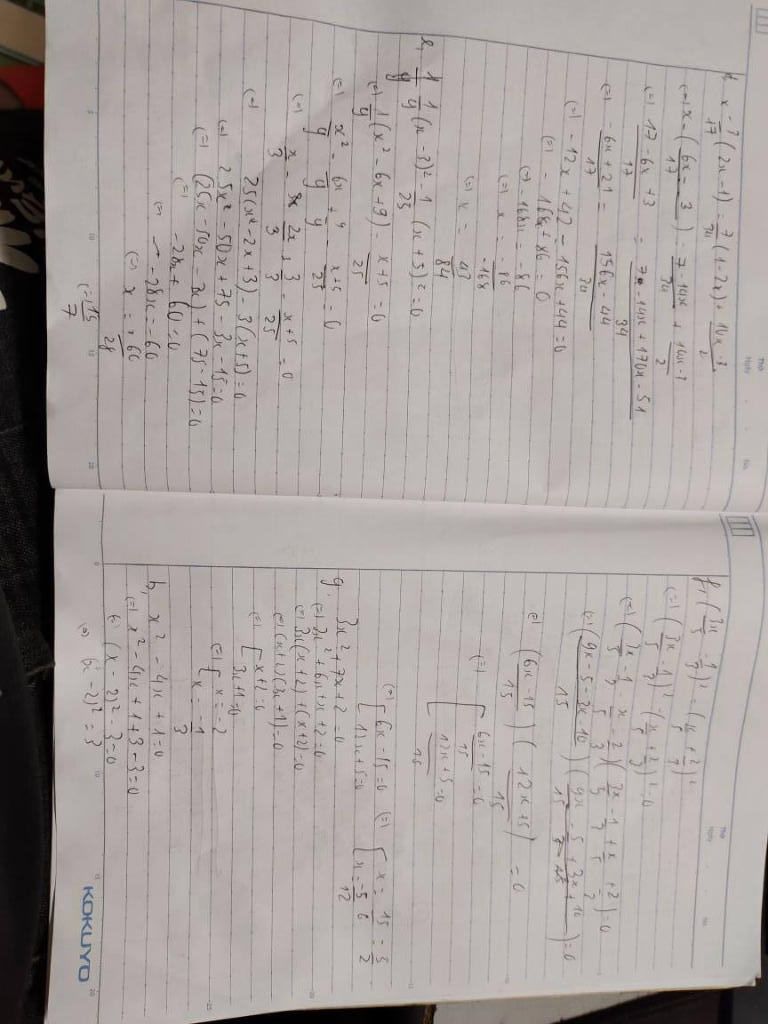 x - 3/17 (2x - 1) = 7/34 (1 - 2x) + 10x - 3/2
(=) x - (6x - 3/17) = 7 - 14x/34 + 10x - 3/2
(=) 17 - 6x + 3/17 = 7 - 14x + 170x - 51/34
(=) - 6x + 21/17 = 156x - 44/34
(=) - 12x + 42 - 156x + 44 = 0
(=) - 168x + 86 = 0
(=) - 168x = - 86
(=) x = - 86/-168
(=) x = 43/84
1/9 (x - 3)² - 1/25 (x + 5)² = 0
(=) 1/9 (x² - 6x + 9) - x + 5/25 = 0
(=) x²/9 - 6x/9 + 9/9 - x + 5/25 = 0
(=) x/3 - 2x/3 + 3/3 - x + 5/25 = 0
(=) 25(x² - 2x + 3) - 3(x + 5) = 0
(=) 25x² - 50x + 75 - 3x - 15 = 0
(=) (25x - 50x - 3x) + (75 - 15) = 0
(=) - 28x + 60 = 0
(=) - 28x = - 60
(=) x = 60/28
(=) 15/7
f, (3x/5 - 1/3)² = (x/5 + 2/3)²
(=) (3x/5 - 1/3)² - (x/5 + 2/3)² = 0
(=) (3x/5 - 1/3 - x/5 - 2/3)(3x/5 - 1/3 + x/5 + 2/3) = 0
(=) (9x - 5 - 3x - 10/15)(9x - 5 + 3x + 10/15) = 0
(=) (6x - 15/15)(12x + 5/15) = 0
(=) [ 6x - 15/15 = 0
12x + 5/15 = 0
(=) [ 6x - 15 = 0 (=) [ x = 15/6 = 5/2
12x + 5 = 0 x = -5/12
g. 3x² + 7x + 2 = 0
(=) 3x² + 6x + x + 2 = 0
(=) 3x(x + 2) + (x + 2) = 0
(=) (x + 2)(3x + 1) = 0
(=) [ x + 2 = 0
3x + 1 = 0
(=) [ x = - 2
x = - 1/3
h, x² - 4x + 1 = 0
(=) x² - 4x + 1 + 3 - 3 = 0
(=) (x - 2)² - 3 = 0
(=) (x - 2)² = 3
KOKUYO